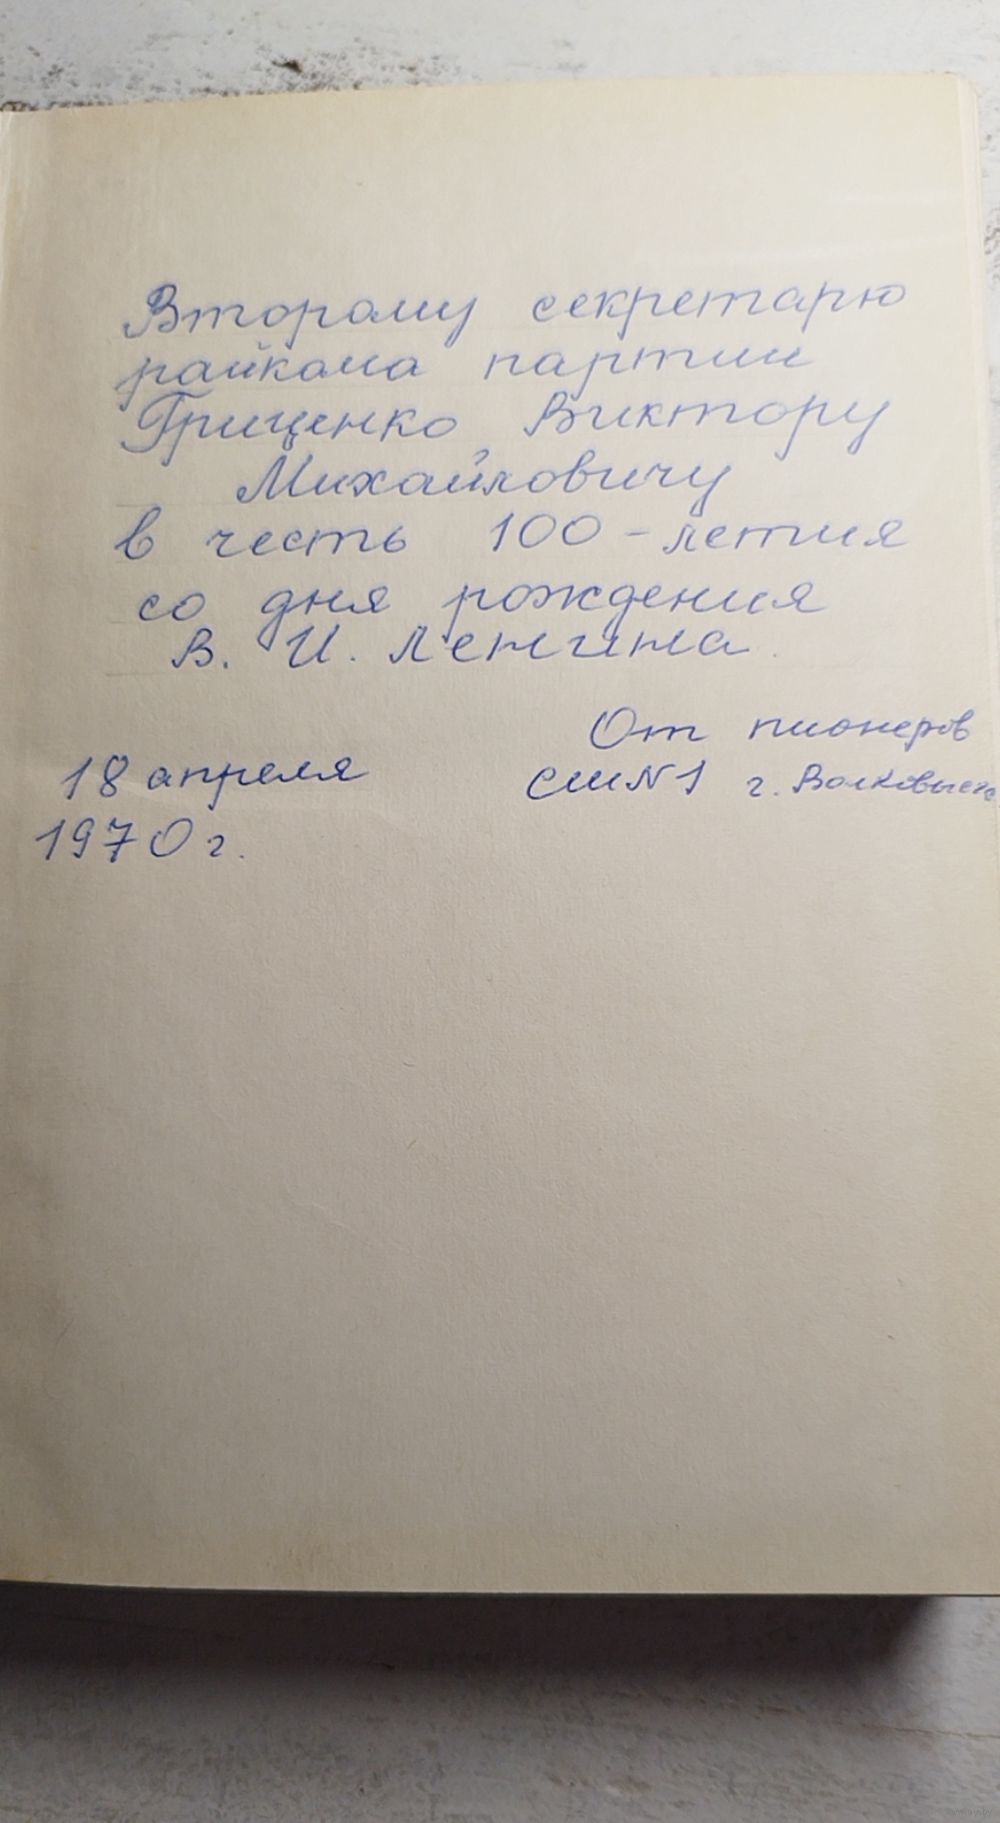 Второму секретарю
райкома партии
Гриценко Виктору
Михайловичу
в честь 100-летия
со дня рождения
В. И. Ленина.
От пионеров
СШN1 г. Волковыска
18 апреля
1970 г.